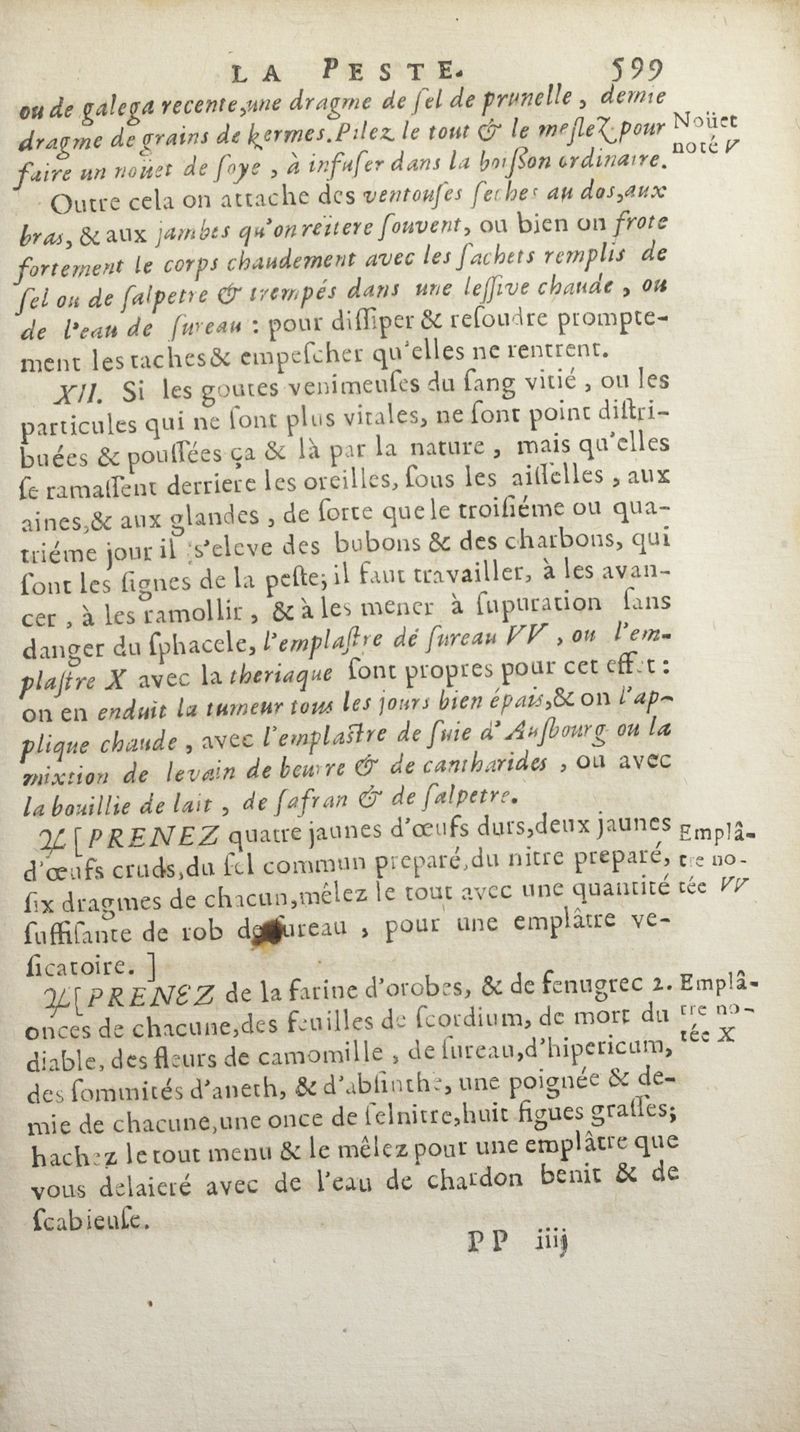 LA PESTE. 599
ou de galega recente,une dragme de ſel de prunelle, demie
dragme de grains de kermes.Pilez le tout & le meſlez pour
faire un noüet de ſoye, à infuſer dans la boiſſon ordinaire.
Noüet
noté V
Outre cela on attache des ventouſes ſeches au dos,aux
bras, & aux jambes qu'on reïtere ſouvent, ou bien on frote
fortement le corps chaudement avec les ſachets remplis de
ſel ou de ſalpetre & trempés dans une leſſive chaude, ou
de l'eau de ſureau : pour diſſiper & reſoudre prompte-
ment les taches& empeſcher qu'elles ne rentrent.
XII. Si les goutes venimeuſes du ſang vitié, ou les
particules qui ne ſont plus vitales, ne ſont point diſtri-
buées & pouſſées ça & là par la nature, mais qu'elles
ſe ramaſſent derriere les oreilles, ſous les aiſſelles, aux
aines,& aux glandes, de ſorte que le troiſiéme ou qua-
triéme jour il s'eleve des bubons & des charbons, qui
ſont les ſignes de la peſte; il faut travailler, à les avan-
cer, à les ramollir, & à les mener à ſupuration ſans
danger du ſphacele, l'emplaſtre de ſureau VV, ou l'em-
plaſtre X avec la theriaque ſont propres pour cet effet :
on en enduit la tumeur tous les jours bien épais,& on l'ap-
plique chaude, avec l'emplaſtre de ſuie d'Auſbourg ou la
mixtion de levain de beurre & de cantharides, ou avec
la bouillie de lait, de ſafran & de ſalpetre.
♃ [PRENEZ quatre jaunes d'œufs durs,deux jaunes
d'œufs cruds,du ſel commun preparé,du nitre preparé,
ſix dragmes de chacun,mêlez le tout avec une quantité
ſuffiſante de rob de ſureau, pour une emplâtre ve-
ſicatoire. ]
Emplâ-
tre no-
tée VV
♃ [PRENEZ de la farine d'orobes, & de fenugrec 2.
onces de chacune,des feuilles de ſcordium, de mort du
diable, des fleurs de camomille, de ſureau,d'hipericum,
des ſommités d'aneth, & d'abſinthe, une poignée & de-
mie de chacune,une once de ſelnitre,huit figues graſſes;
hachez le tout menu & le mêlez pour une emplâtre que
vous delaieré avec de l'eau de chardon benit & de
ſcabieuſe.
Emplâ-
tre no-
tée X
PP iiij